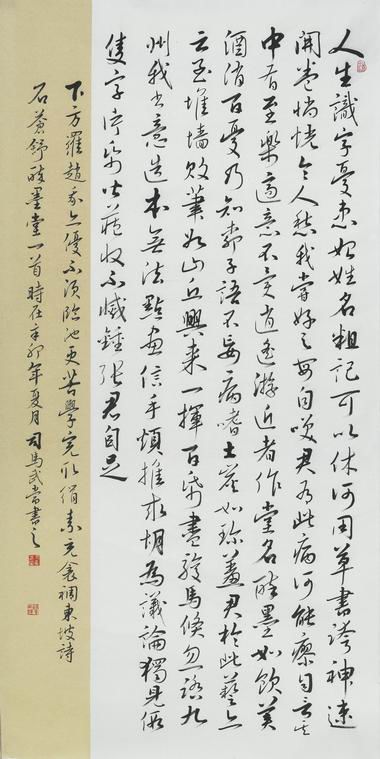 人生識字憂患始姓名粗記可以休何用草書誇神速
開卷惝恍令人愁我嘗好之每自笑君有此病何能瘳自言其
中有至樂適意不異逍遙游近者作堂名醉墨如飲美
酒消百憂乃知柳子語不妄病嗜土炭如珍羞君於此藝亦
云至堆墻敗筆如山丘興來一揮百紙盡駿馬倏忽踏九
州我書意造本無法點畫信手煩推求胡為議論獨見假
隻字片紙皆藏收不減鍾張君自足
下方羅趙我亦優不須臨池更苦學完取絹素充衾裯東坡詩
石蒼舒醉墨堂一首時在辛卯年夏月司馬武當書之